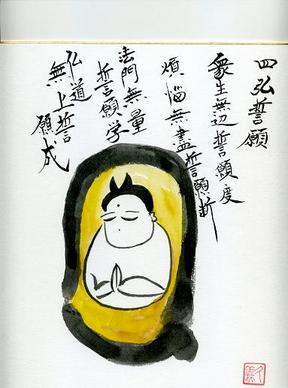 四弘誓願
衆生無辺誓願度
煩悩無盡誓願断
法門無量
誓願学
仏道
無上誓
願成